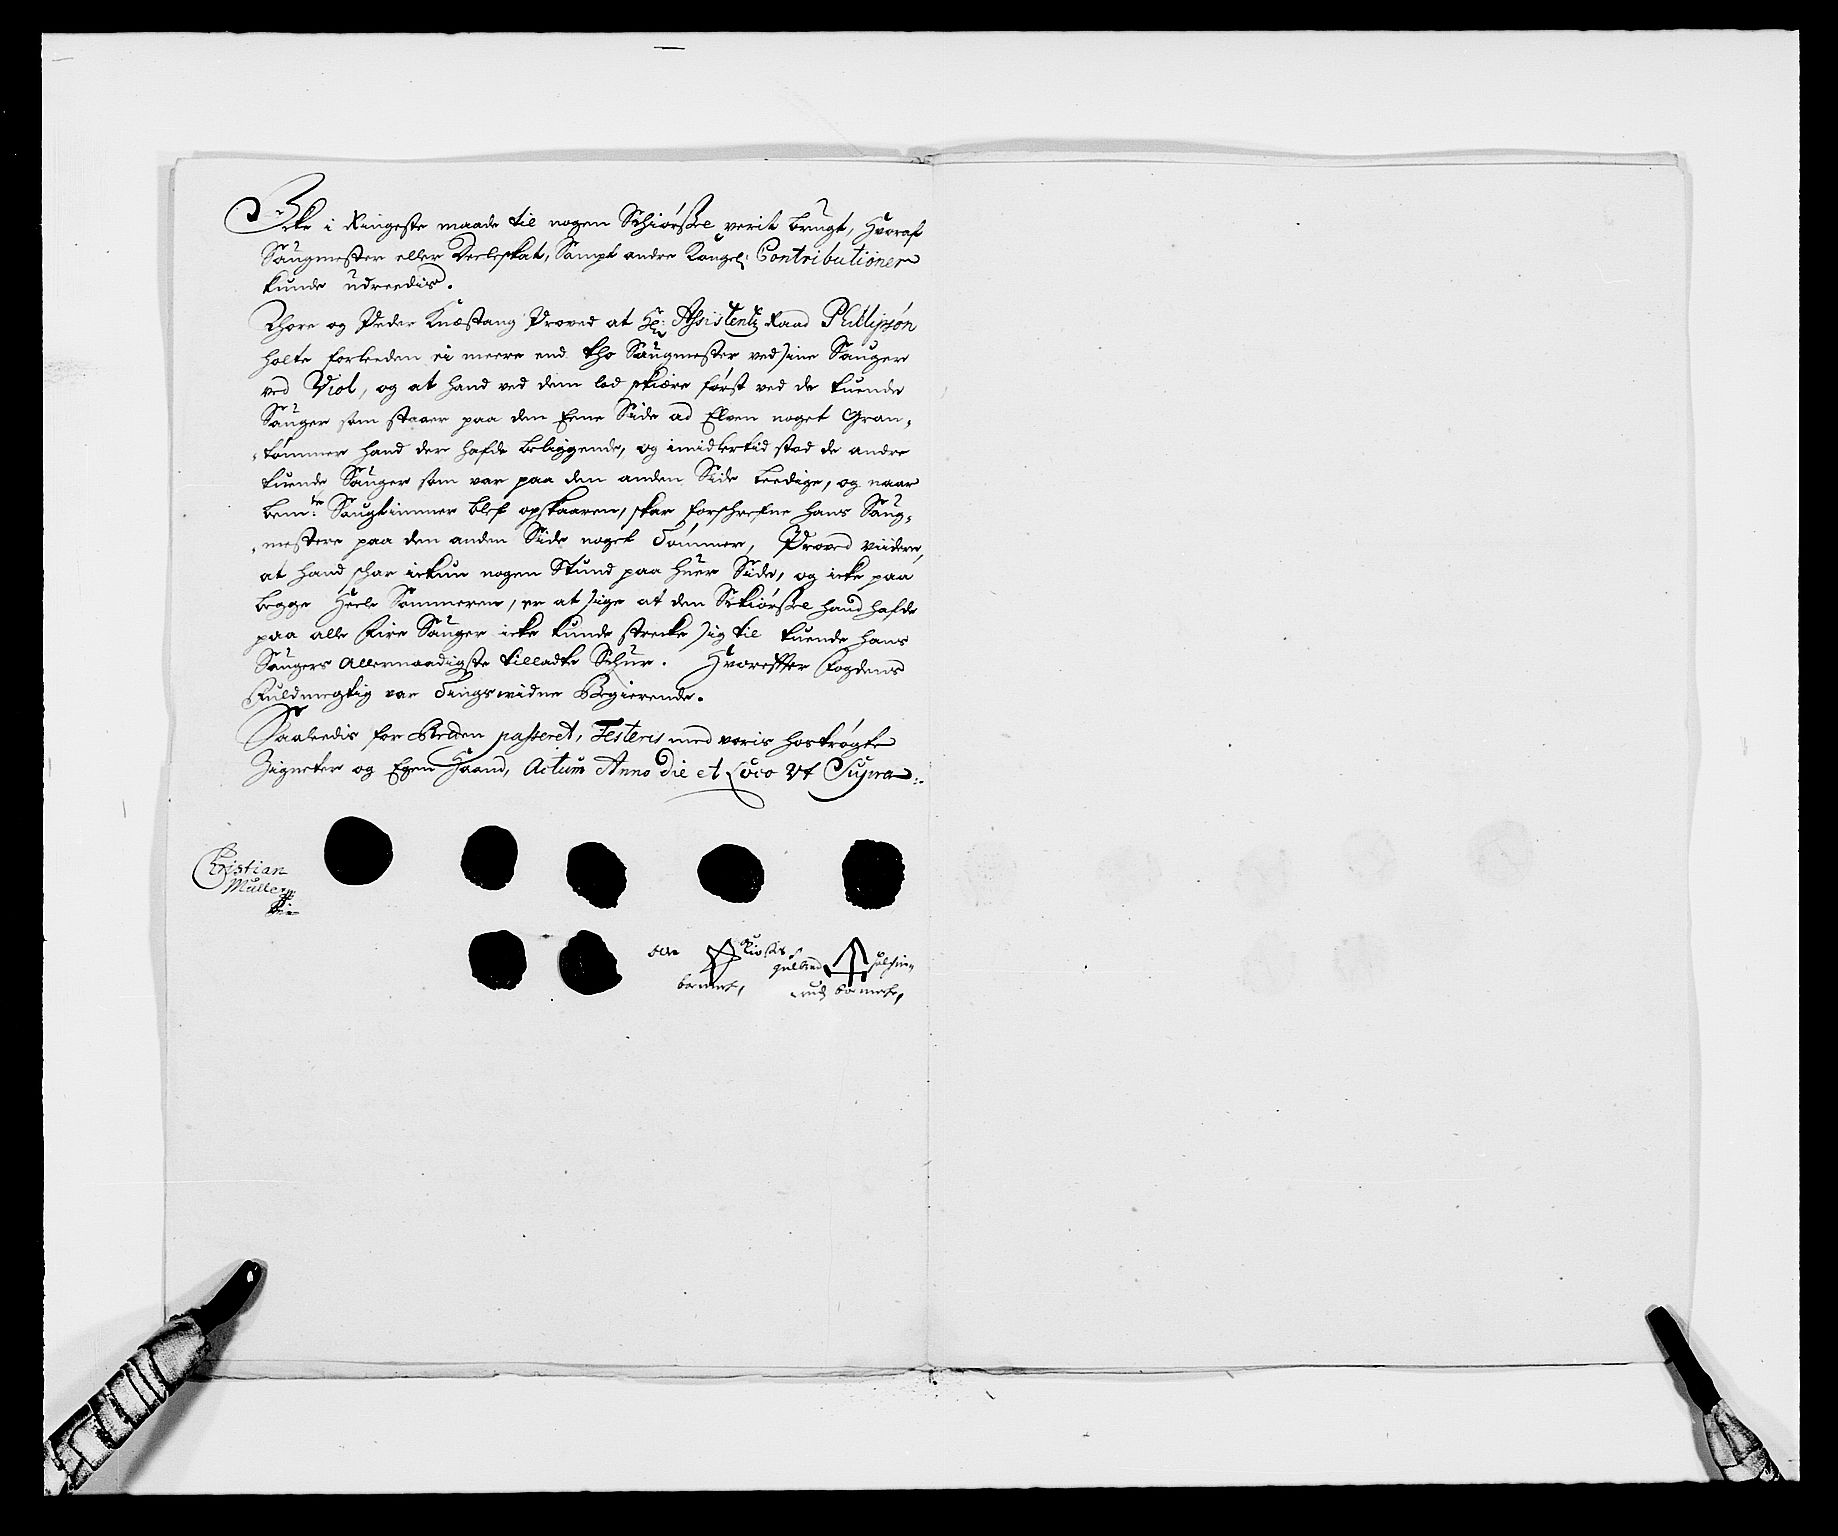 Icke i Ringeste maade til nogen Schiørsel verit brugt, Hvoraf
Saugmester eller Deeleskat, Sampt andre Kongel: Contributioner
kunde udreedis.
Thore og Peder Knæstang Proved at Hr: Assistentz Raad Phillipsøn
holte forleeden ei meere end tho Saugmester ved sine Sauger
ved Viol, og at hand ved dem lod skiære først ved de tuende
Sauger som staaer paa den Eene Side ad Elven noget Gran-
-tømmer hand der hafde beliggende, og imidlertid stod de andre
tuende Sauger som var paa den anden Side Leedige, og naar
bem:te Saugtimmer blef opskaaren, skar forschrefne hans Saug-
-mestere paa den anden Side noget Tømmer, Proved viidere,
at hand schar ickun nogen Stund paa huer Side, og icke paa
begge Heele Sommeren, er at sige at den Schiørsel hand hafde
paa alle Fire Sauger icke kunde strecke sig til tuende hans
Saugers Allernaadigste tilladte Schur. Hvorefter Fogdens
Fuldmegtig var Tingsvidne Begierende.
Saaleedis for Retten passeret, Testeris med voris hostrøgte
Zigneter og Egen Haand, Actum Anno die et Loco Ut Supra.
Christian
Muller
Ole
bomerk,
gulbrand
rud bomerke,